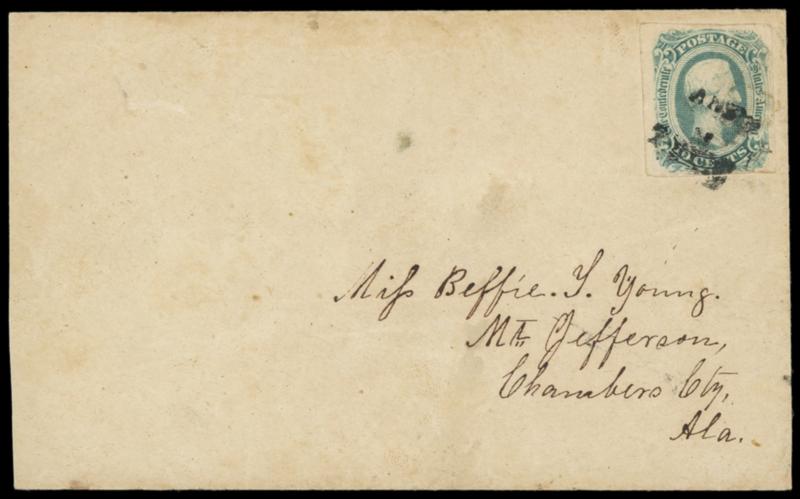 POSTAGE
The Confederate States America
AND
10 CENTS
Miſs Beffie. T. Young.
Mt. Jefferson,
Chambers Cty,
Ala.